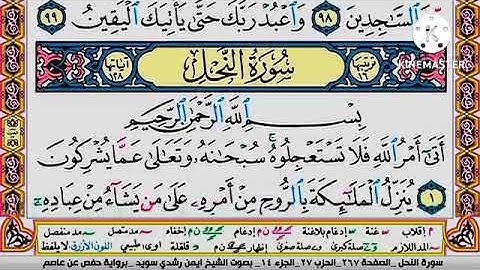 ٱلسَّٰجِدِينَ ٩٨ وَٱعْبُدْ رَبَّكَ حَتَّىٰ يَأْتِيَكَ ٱلْيَقِينُ ٩٩
KINEMASTER
ترتيبها ١٦ سُورَةُ النَّحْلِ آياتها ١٢٨
بِسْمِ ٱللَّهِ ٱلرَّحْمَٰنِ ٱلرَّحِيمِ
أَتَىٰٓ أَمْرُ ٱللَّهِ فَلَا تَسْتَعْجِلُوهُ ۚ سُبْحَٰنَهُۥ وَتَعَٰلَىٰ عَمَّا يُشْرِكُونَ
١ يُنَزِّلُ ٱلْمَلَٰٓئِكَةَ بِٱلرُّوحِ مِنْ أَمْرِهِۦ عَلَىٰ مَن يَشَآءُ مِنْ عِبَادِهِۦٓ
م إقلاب غنة إدغام بلاغنة إدغام ن م إخفاء مد متصل مد منفصل
المد اللازم صلة كبرى صلة صغرى إظهار ن م قلقلة مد عوض اوى طبيعي اللون الأزرق لا يلفظ
سورة النحل _الصفحة ٢٦٧_الحزب ٢٧_الجزء ١٤_ بصوت الشيخ ايمن رشدي سويد _برواية حفص عن عاصم